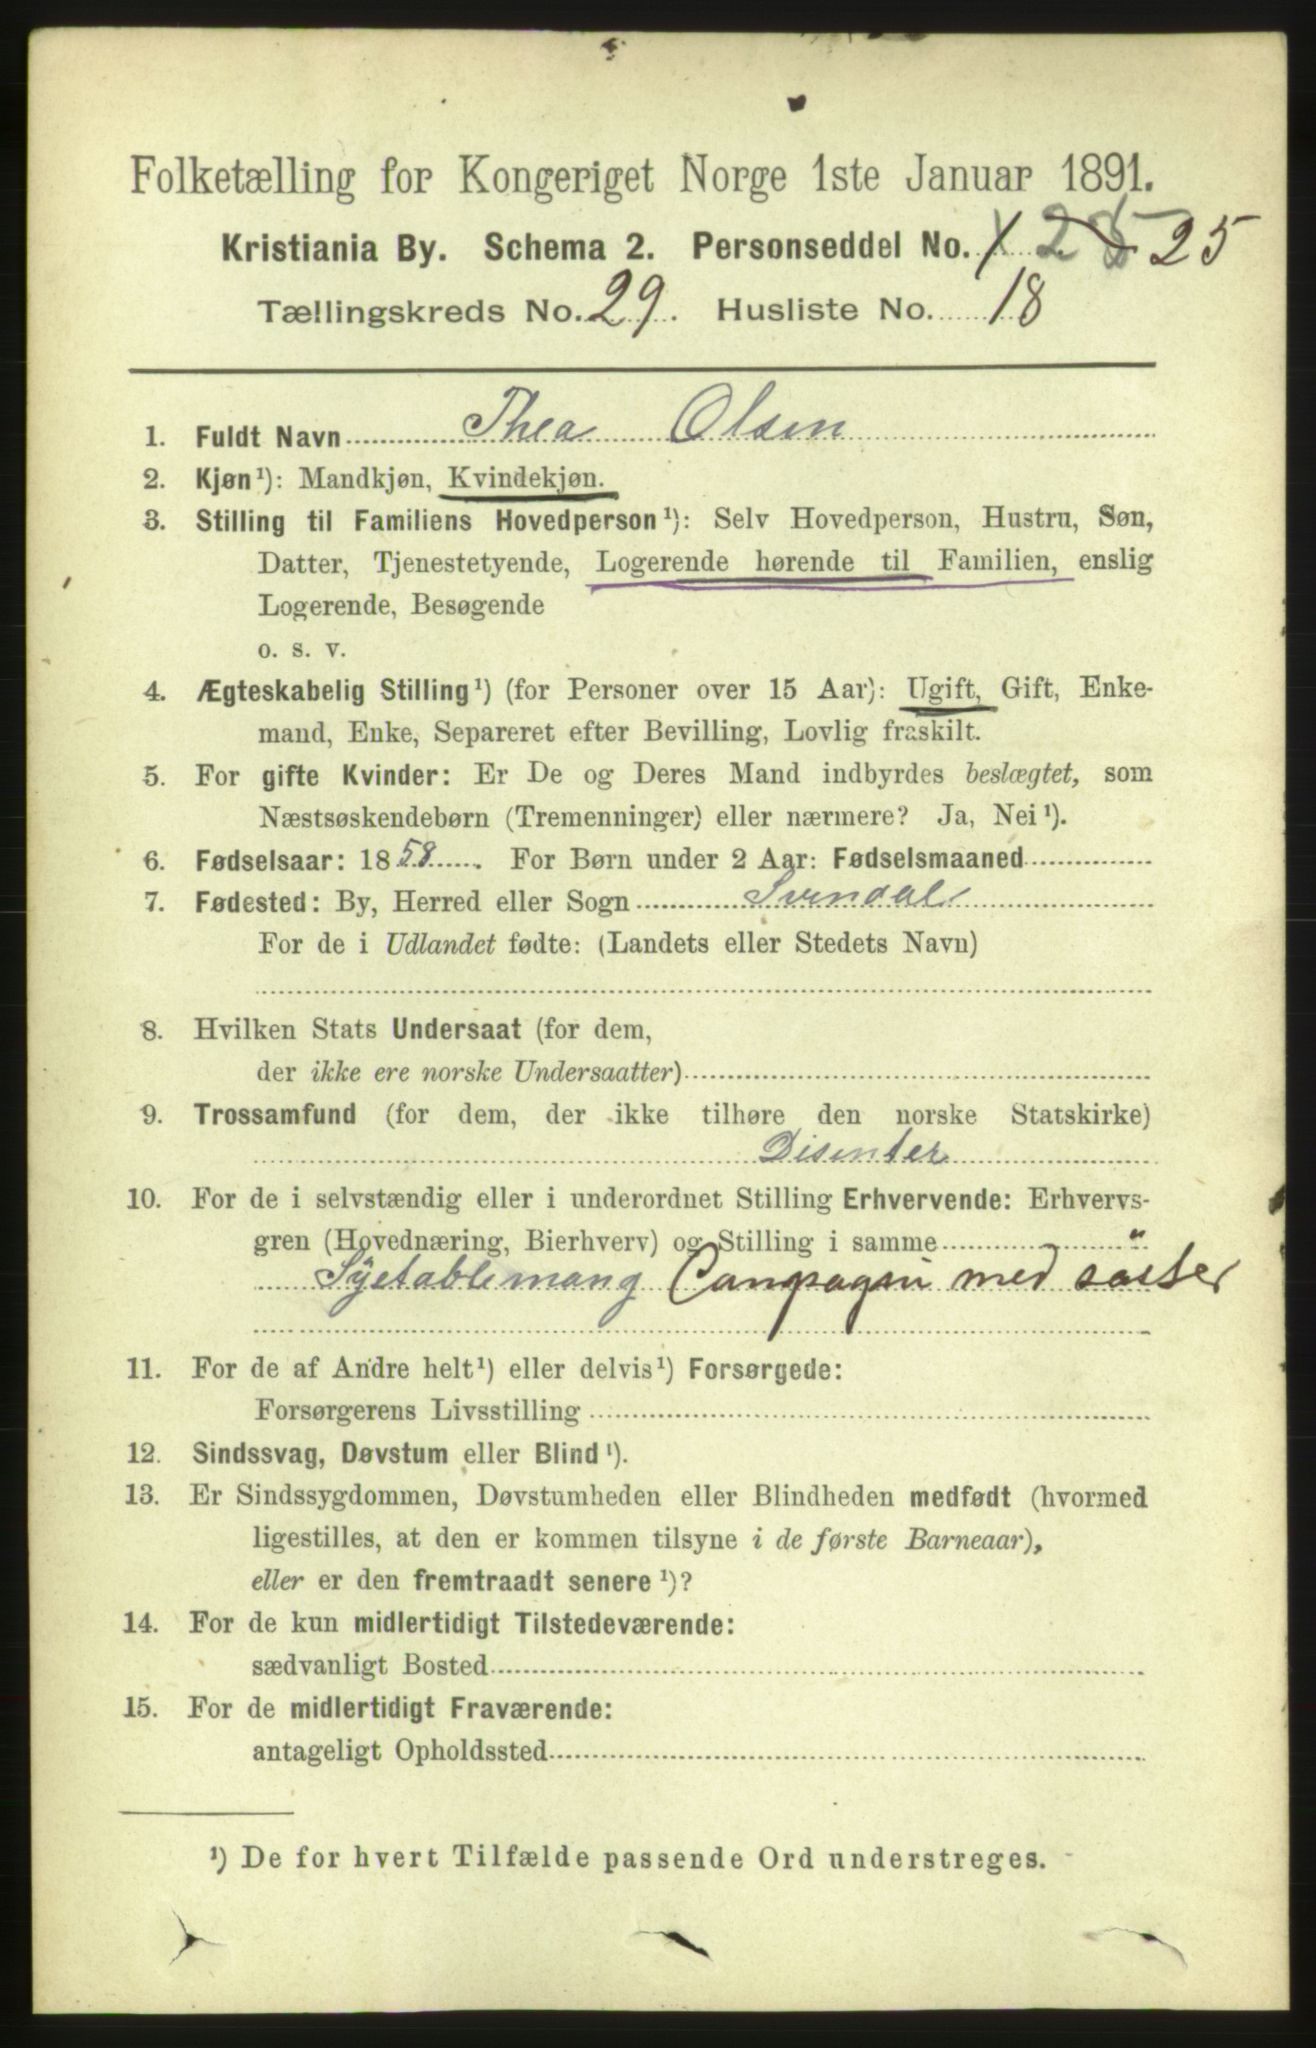 Folketælling for Kongeriget Norge 1ste Januar 1891.
Kristiania By. Schema 2. Personseddel No. 25
Tællingskreds No. 29. Husliste No. 18
1. Fuldt Navn Thea Olsen
2. Kjøn¹): Mandkjøn, Kvindekjøn.
3. Stilling til Familiens Hovedperson¹): Selv Hovedperson, Hustru, Søn,
Datter, Tjenestetyende, Logerende hørende til Familien, enslig
Logerende, Besøgende
o. s. v.
4. Ægteskabelig Stilling¹) (for Personer over 15 Aar): Ugift, Gift, Enke-
mand, Enke, Separeret efter Bevilling, Lovlig fraskilt.
5. For gifte Kvinder: Er De og Deres Mand indbyrdes beslægtet, som
Næstsøskendebørn (Tremenninger) eller nærmere? Ja, Nei¹).
6. Fødselsaar: 1858. For Børn under 2 Aar: Fødselsmaaned
7. Fødested: By, Herred eller Sogn Svendal
For de i Udlandet fødte: (Landets eller Stedets Navn)
8. Hvilken Stats Undersaat (for dem,
der ikke ere norske Undersaatter)
9. Trossamfund (for dem, der ikke tilhøre den norske Statskirke)
Disenter
10. For de i selvstændig eller i underordnet Stilling Erhvervende: Erhvervs-
gren (Hovednæring, Bierhverv) og Stilling i samme
Syetablemang Campagni med söster
11. For de af Andre helt¹) eller delvis¹) Forsørgede:
Forsørgerens Livsstilling
12. Sindssvag, Døvstum eller Blind¹).
13. Er Sindssygdommen, Døvstumheden eller Blindheden medfødt (hvormed
ligestilles, at den er kommen tilsyne i de første Barneaar),
eller er den fremtraadt senere¹)?
14. For de kun midlertidigt Tilstedeværende:
sædvanligt Bosted
15. For de midlertidigt Fraværende:
antageligt Opholdssted
¹) De for hvert Tilfælde passende Ord understreges.